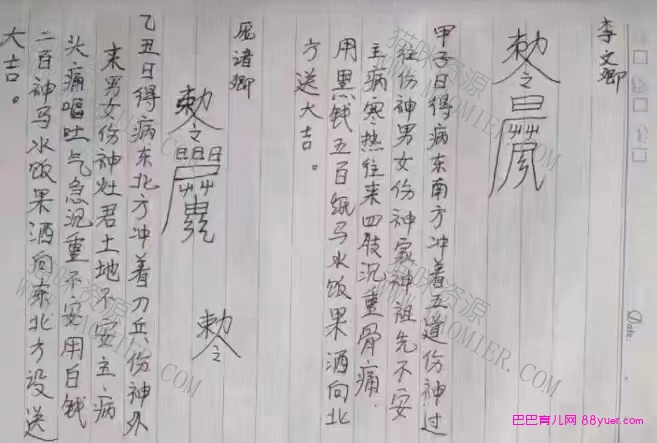 李文卿
敕令
甲子日得病东南方冲着五道伤神过
往伤神男女伤神家神祖先不安
主病寒热往来四肢沉重骨痛
用黑钱五百纸马水饭果酒向北
方送大吉。
敕令
乙丑日得病东北方冲着刀兵伤神外
来男女伤神灶君土地不安主病
头痛呕吐气急沉重不安用白钱
二百神马水饭果酒向东北方设送
大吉。
敕令
Date:
猫咪资源
WWW.MAOMIER.COM
巴巴育儿网 88yuer.com